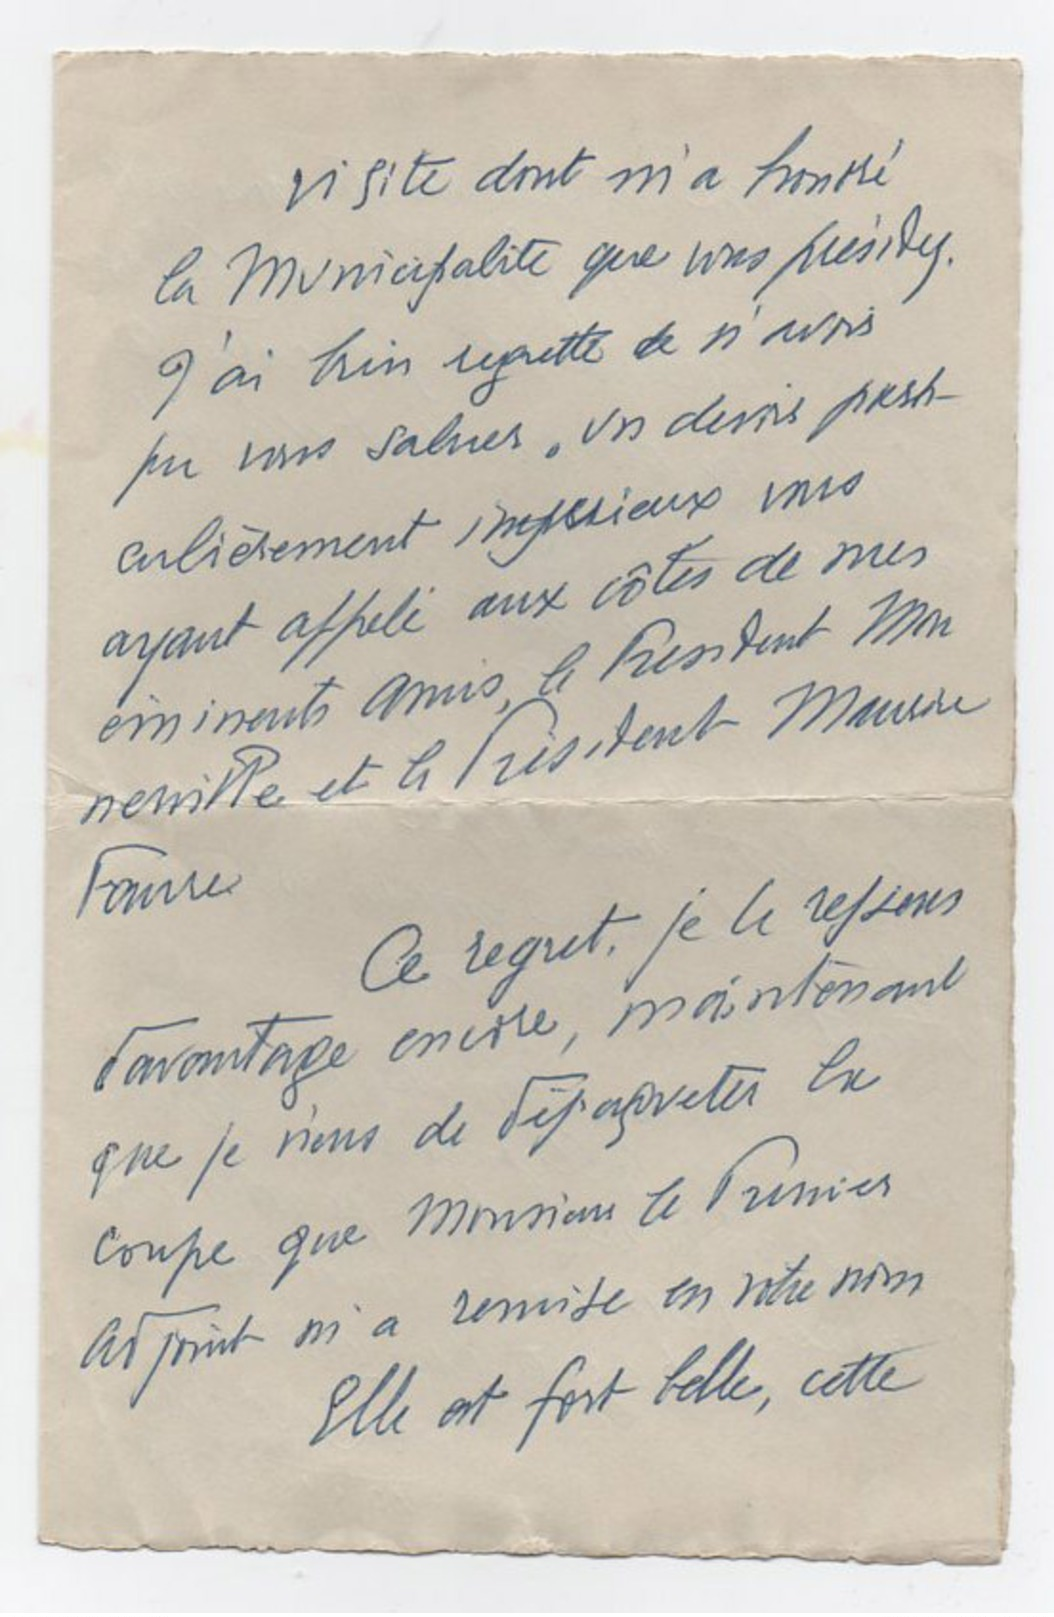 visite dont m'a honoré
la Municipalité que vous présidez.
J'ai bien regretté de n'avoir
pu vous saluer, un devoir parti-
culièrement impérieux vous
ayant appelé aux côtés de mes
éminents amis, le Président Mon
nerville et le Président Maurice
Faure
Ce regret, je le ressens
davantage encore, maintenant
que je viens de dépaqueter la
coupe que Monsieur le Premier
adjoint m'a remise en votre nom
Elle est fort belle, cette